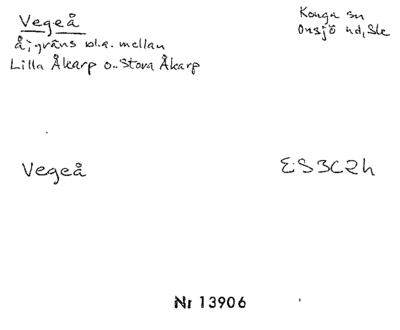 Vegeå
Konga sn
Onsjö hd, Sk
å; gräns bl.a. mellan
Lilla Åkarp o. Stora Åkarp
Vegeå
ES3C2h
Nr 13906